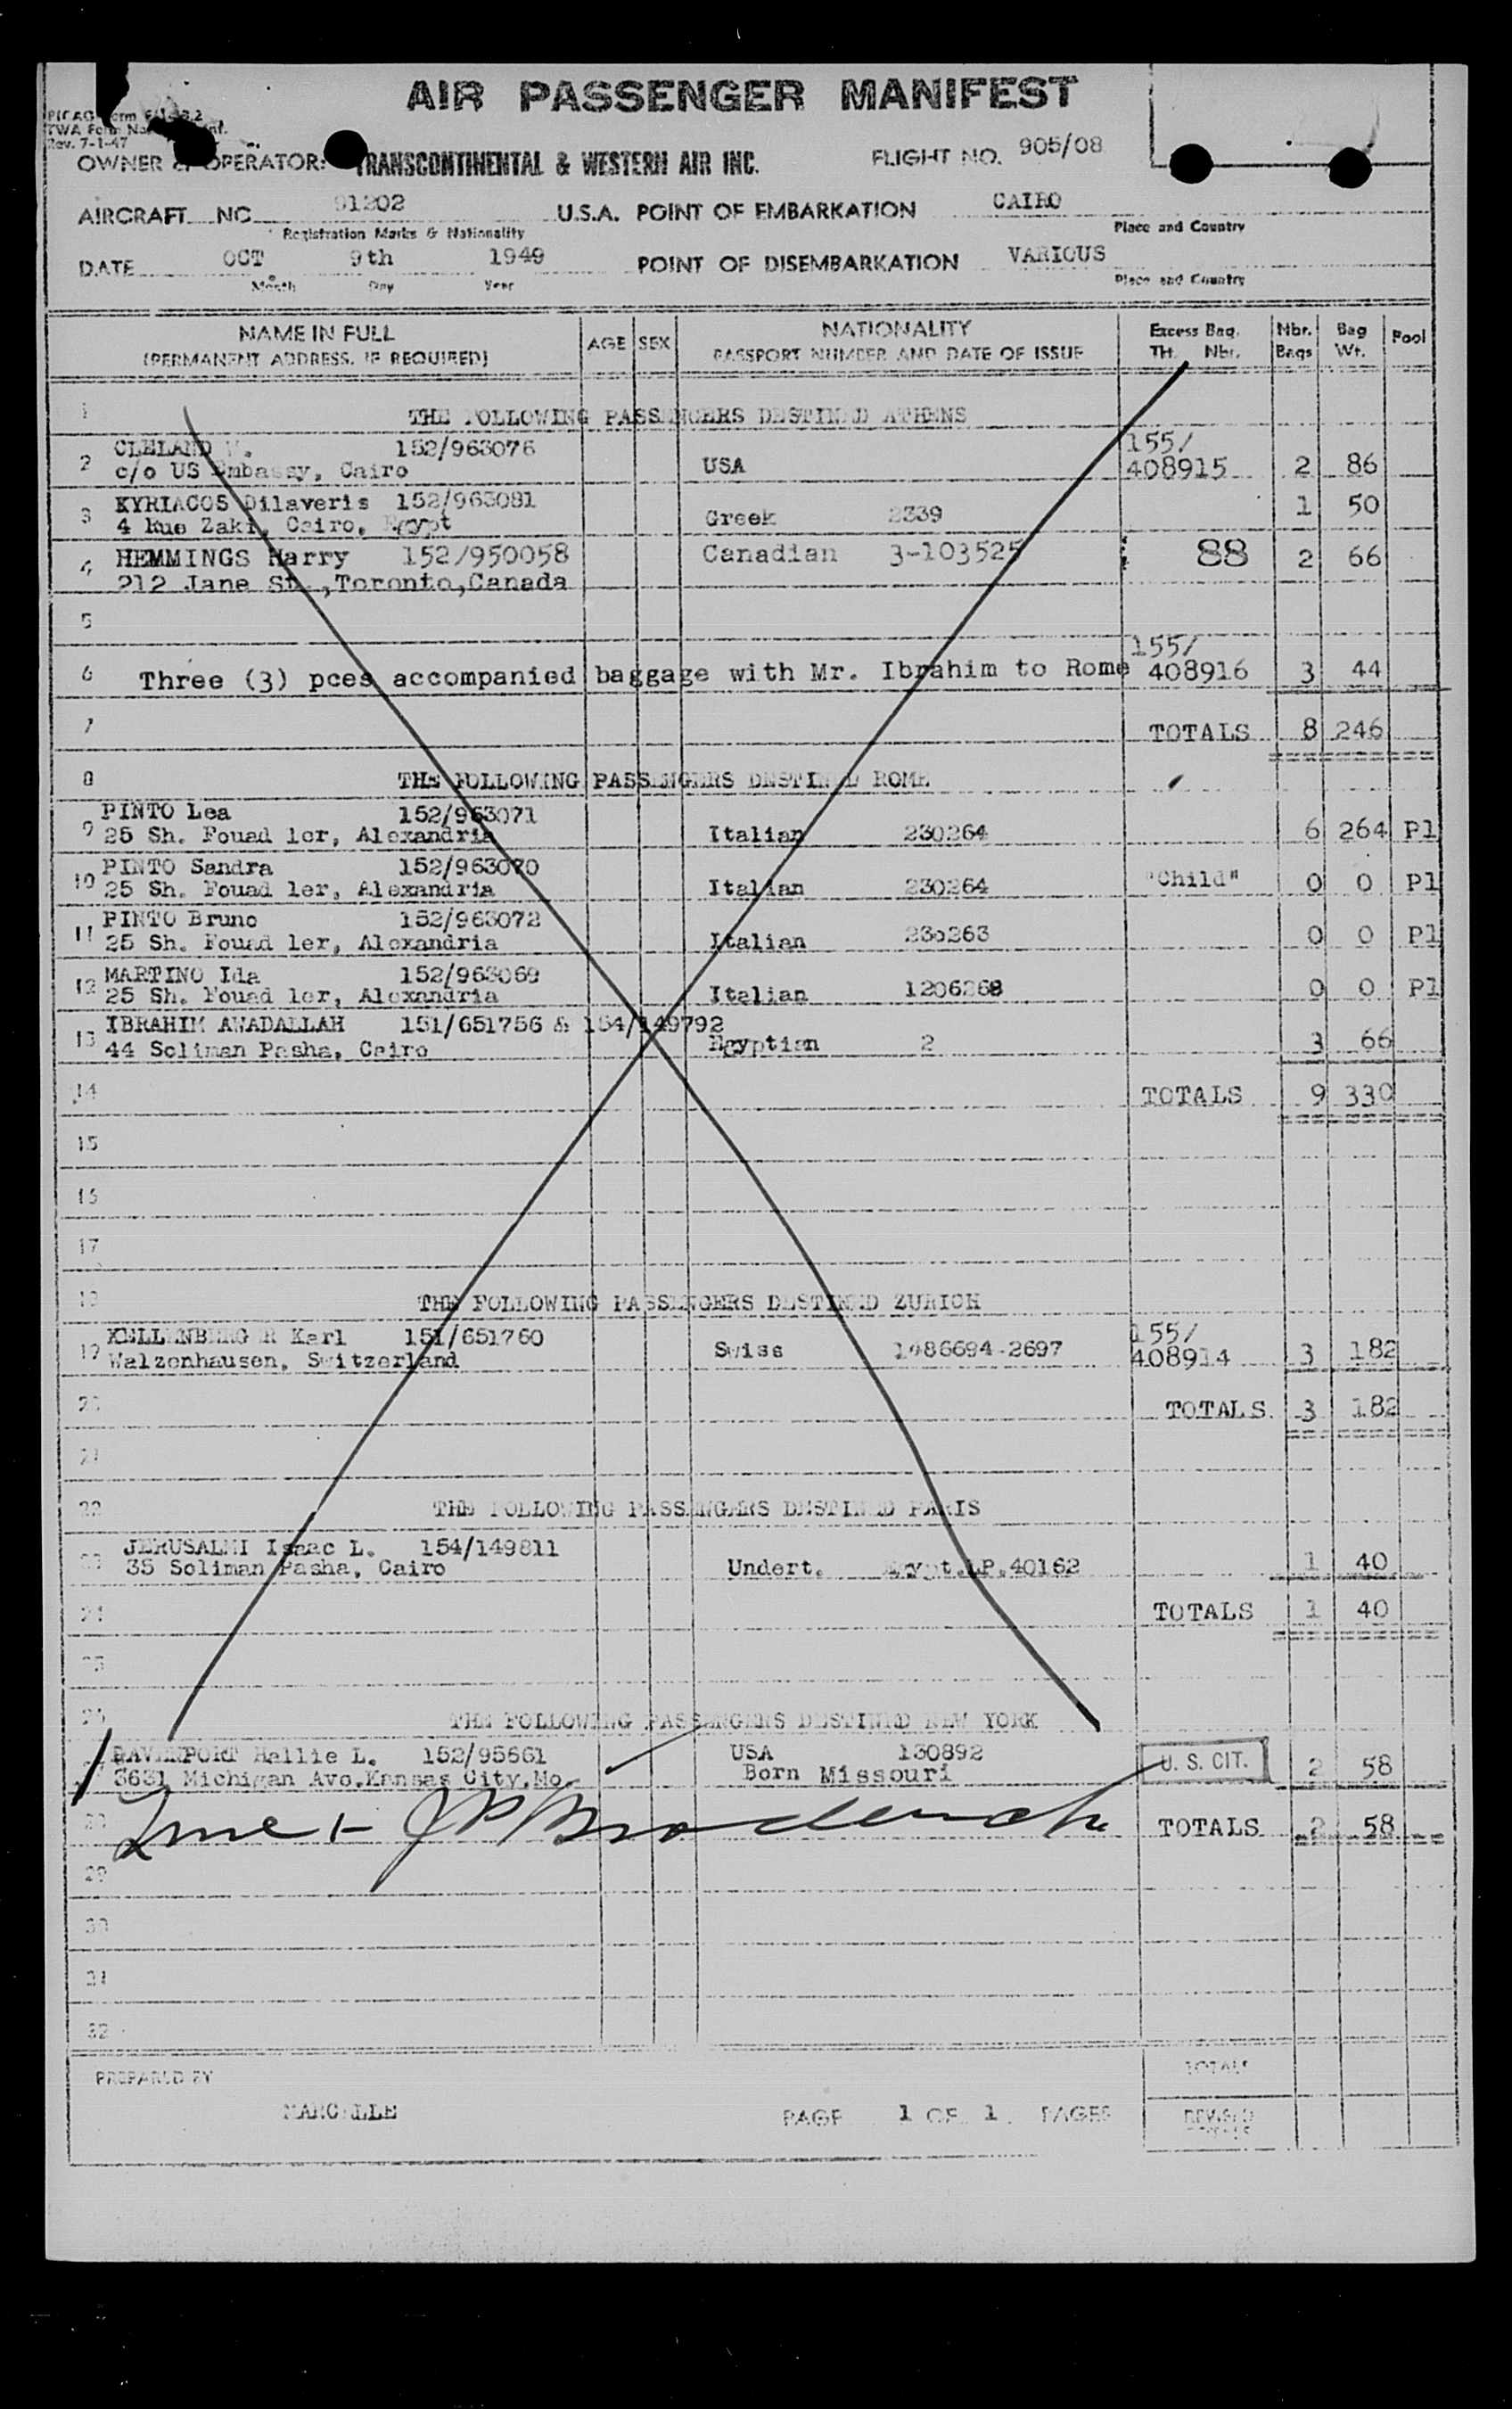 AIR PASSENGER MANIFEST
TWA Form No.
Rev. 7-1-47
OWNER & OPERATOR: TRANSCONTINENTAL & WESTERN AIR INC. FLIGHT NO. 905/08
AIRCRAFT NC 91202 U.S.A. POINT OF EMBARKATION CAIRO
Registration Marks & Nationality Place and Country
DATE OCT 9th 1949 POINT OF DISEMBARKATION VARIOUS
Month Day Year Place and Country
NAME IN FULL AGE SEX NATIONALITY Excess Bag. Nbr. Bag Pool
(PERMANENT ADDRESS, IF REQUIRED) PASSPORT NUMBER AND DATE OF ISSUE Tkt. Nbr. Bags Wt.
1 THE FOLLOWING PASSENGERS DESTINED ATHENS
2 CLELAND 152/963076 155/
c/o US Embassy, Cairo USA 408915 2 86
3 KYRIACOS Dilaveris 152/963081 1 50
4 Rue Zaki, Cairo, Egypt Greek 2339
4 HEMMINGS Harry 152/950058 Canadian 3-103525 88 2 66
212 Jane St.,Toronto,Canada
5
155/
6 Three (3) pces accompanied baggage with Mr. Ibrahim to Rome 408916 3 44
7 TOTALS 8 246
8 THE FOLLOWING PASSENGERS DESTINED ROME
PINTO Lea 152/963071
9 25 Sh. Fouad 1er, Alexandria Italian 230264 6 264 Pl
PINTO Sandra 152/963070
10 25 Sh. Fouad 1er, Alexandria Italian 230264 "Child" 0 0 Pl
PINTO Bruno 152/963072
11 25 Sh. Fouad 1er, Alexandria Italian 230263 0 0 Pl
MARTINO Ida 152/963069
12 25 Sh. Fouad 1er, Alexandria Italian 1206268 0 0 Pl
IBRAHIM AWADALLAH 151/651756 & 154/149792
13 44 Soliman Pasha, Cairo Egyptian 2 3 66
14 TOTALS 9 330
15
16
17
18 THE FOLLOWING PASSENGERS DESTINED ZURICH
KELLENBERGER Karl 151/651760 155/
19 Walzenhausen, Switzerland Swiss 1486694-2697 408914 3 182
20 TOTALS 3 182
21
22 THE FOLLOWING PASSENGERS DESTINED PARIS
JERUSALMI Isaac L. 154/149811
23 35 Soliman Pasha, Cairo Undert. Egypt.LP.40162 1 40
24 TOTALS 1 40
25
26 THE FOLLOWING PASSENGERS DESTINED NEW YORK
DAVENPORT Hallie L. 152/95661 USA 130892 U. S. CIT. 2 58
3631 Michigan Ave.Kansas City.Mo. Born Missouri
28 TOTALS 2 58
29
30
31
32
PREPARED BY TOTALS
MARCELLE PAGE 1 OF 1 PAGES REVISED